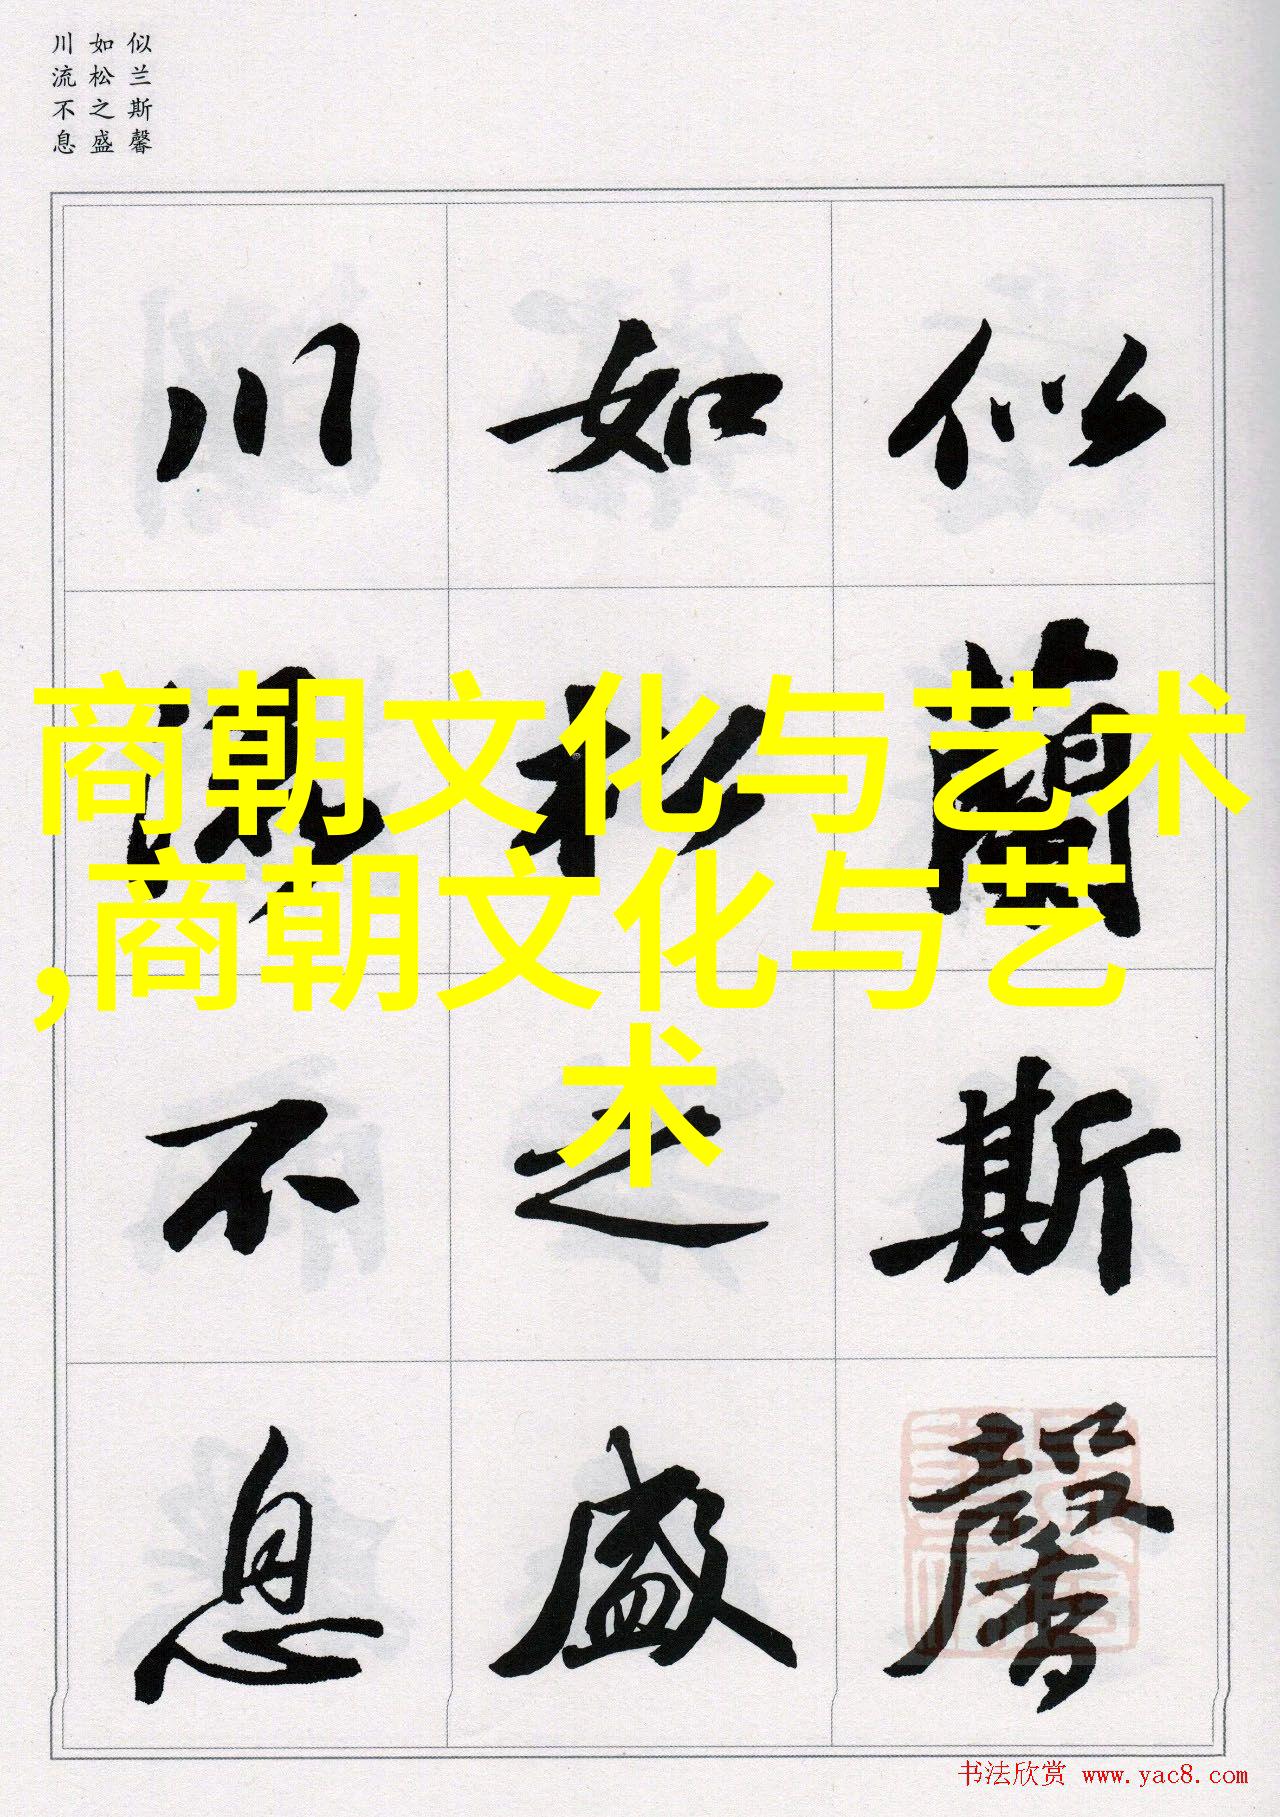 似兰斯馨
如松之盛
川流不息
似蘭斯馨
如松之盛
川流不息
商朝文化与艺术
,商朝文化与艺
术
书法欣赏 www.yac8.com